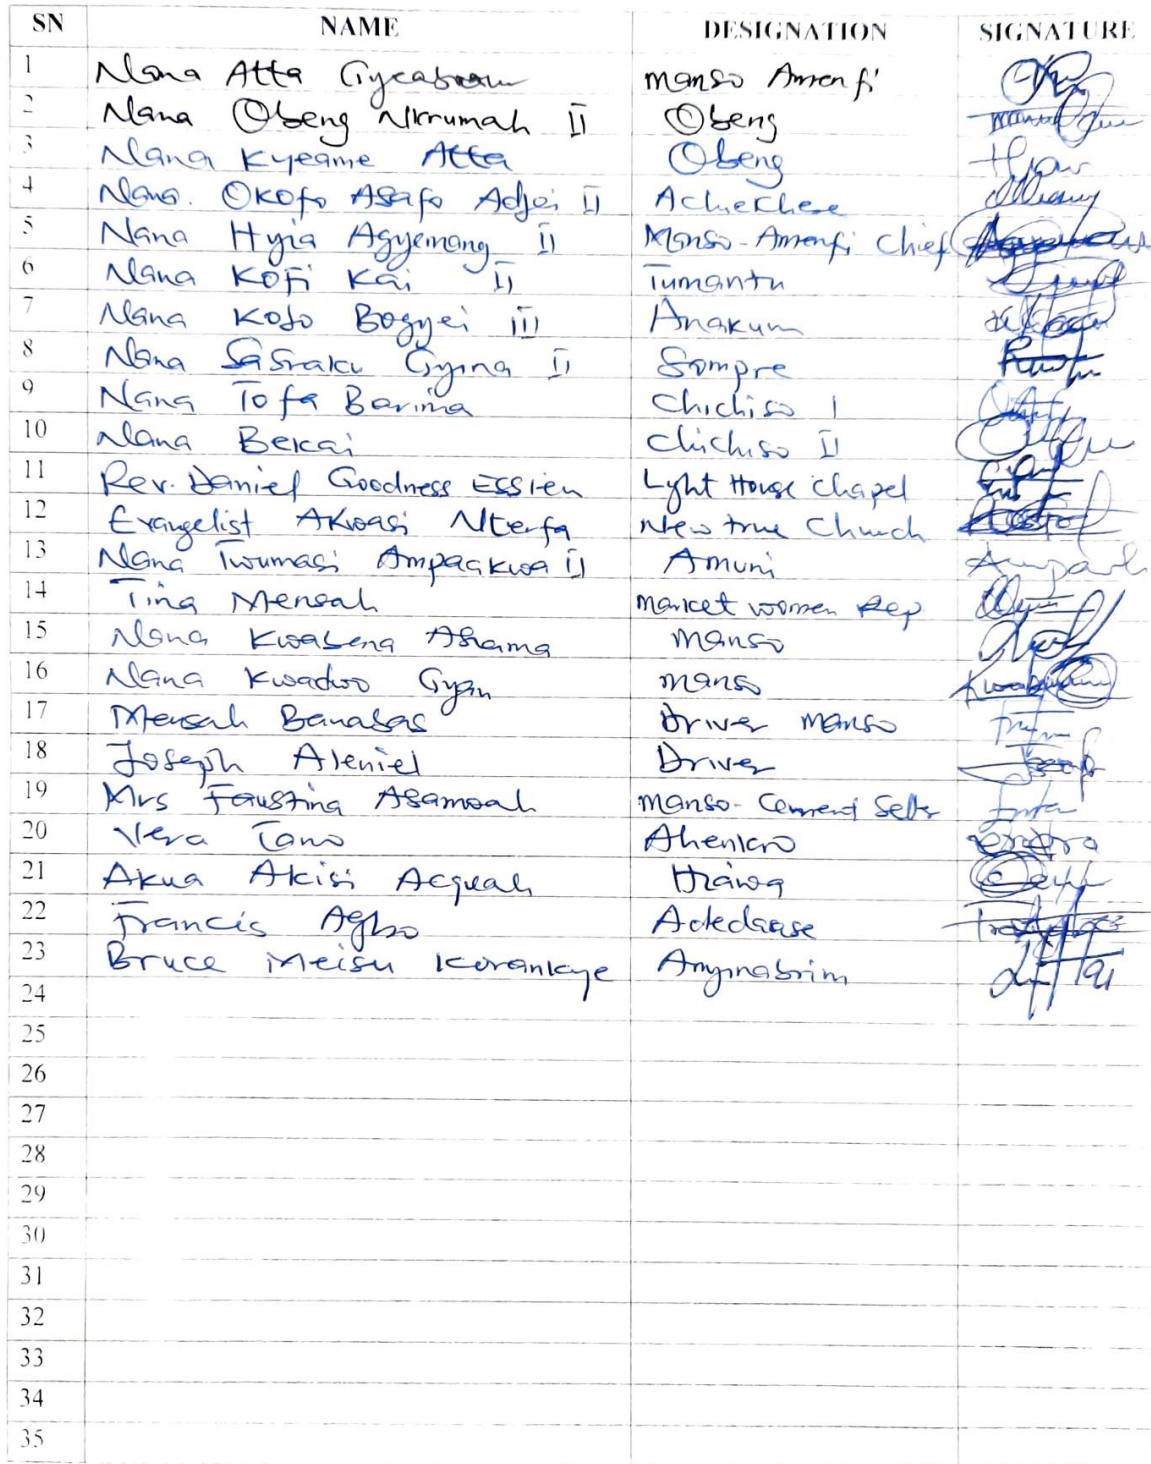 SN NAME DESIGNATION SIGNATURE
1 Nana Atta Manso Amenfi
2 Nana Obeng Nkrumah II Obeng
3 Nana Kyeame Atta Obeng
4 Nana. Okofo Asafo Adjei II Achiekhese
5 Nana Hyia Agyemang II Manso-Amenfi Chief
6 Nana Kofi Kai II Tumantu
7 Nana Kojo Bogyei III Anakum
8 Nana Sasraku Gyina II Sompre
9 Nana Tofa Barima Chichiso I
10 Nana Bekai Chichiso II
11 Rev. Daniel Goodness Essien Lyht House Chapel
12 Evangelist Akwasi Nterfa New true Church
13 Nana Twumasi Ampaakwa II Amuni
14 Tina Mensah Market women Rep
15 Nana Kwabena Ahama Manso
16 Nana Kwadwo Gyan Manso
17 Mensah Banabas Driver Manso
18 Joseph Aleniel Driver
19 Mrs Faustina Asamoah Manso-Cement Seller
20 Vera Tano Ahenkro
21 Akua Akisi Acquah Hiawa
22 Francis Agbo Adedaase
23 Bruce Meisu Korankye Anyinabrim
24
25
26
27
28
29
30
31
32
33
34
35